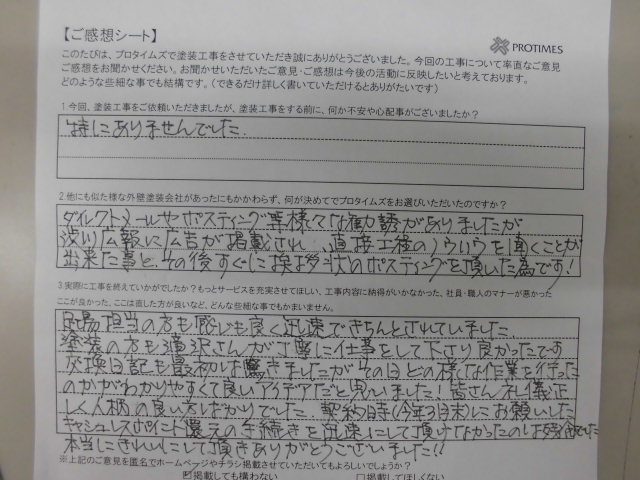 【ご感想シート】
PROTIMES
このたびは、プロタイムズで塗装工事をさせていただき誠にありがとうございました。今回の工事について率直なご意見
ご感想をお聞かせください。お聞かせいただいたご意見・ご感想は今後の活動に反映したいと考えております。
どのような些細な事でも結構です。(できるだけ詳しく書いていただけるとありがたいです)
1.今回、塗装工事をご依頼いただきましたが、塗装工事をする前に、何か不安や心配事がございましたか？
特にありませんでした.
2.他にも似た様な外壁塗装会社があったにもかかわらず、何が決めてでプロタイムズをお選びいただいたのですか？
ダイレクトメールやポスティング等様々な勧誘がありましたが
渋川広報に広告が掲載され、直接工程のノウハウを聞くことが
出来た事と、その後すぐに挨拶状のポスティングを頂いた為です！
3.実際に工事を終えていかがでしたか？もっとサービスを充実させてほしい、工事内容に納得がいかなかった、社員・職人のマナーが悪かった
ここが良かった、ここは直した方が良いなど、どんな些細な事でもかまいません。
足場担当の方も感じも良く迅速できちんとされていました.
塗装の方も 沢さんが丁寧に仕事をして下さり良かったです
交換日記も最初は驚きましたがその日どの様な作業を行った
のかがわかりやすくて良いアイデアだと思いました！皆さん礼儀正
しく人柄の良い方ばかりでした. 契約時(今年3月末)にお願いした
キャッシュレスポイント還元の手続きを迅速にして頂けなかったのは残念でした
本当にきれいにして頂きありがとうございました!!
※上記のご意見を匿名でホームページやチラシ掲載させていただいてもよろしいでしょうか？
掲載しても構わない □掲載してほしくない